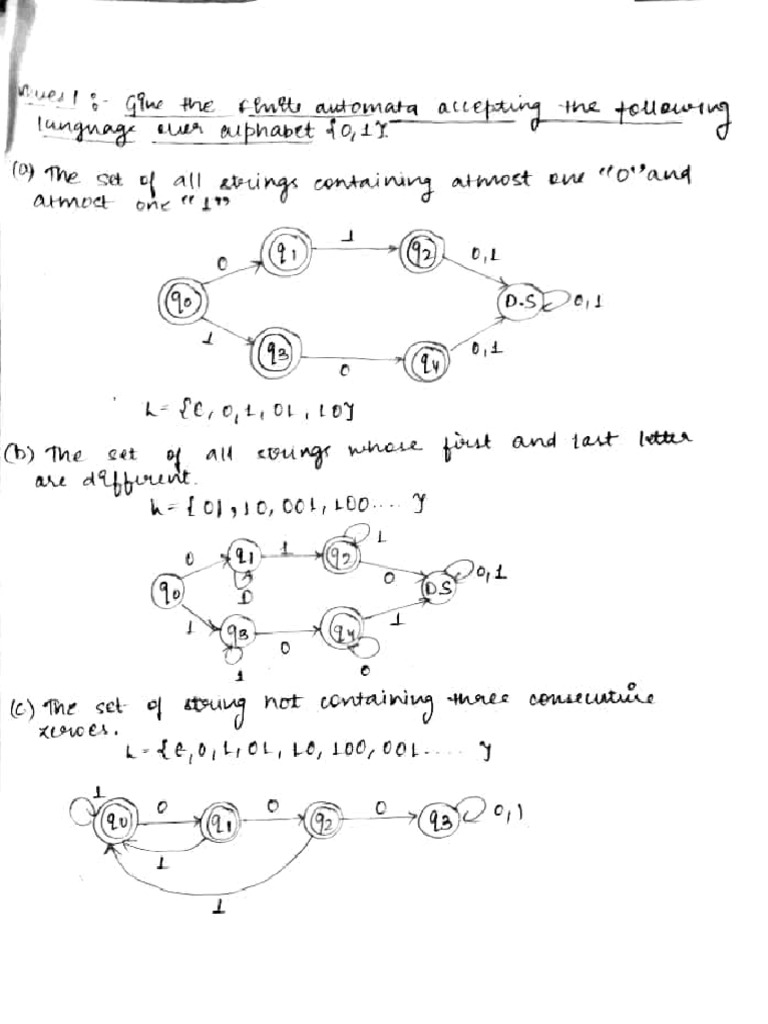 Ques 1 :- Give the finite automata accepting the following
language over alphabet {0,1}.
(a) The set of all strings containing atmost one "0" and
atmost one "1"
0 q1 1 q2 0,1
q0 D.S 0,1
1 q3 0 q4 0,1
L = {ε, 0, 1, 01, 10}
(b) The set of all strings whose first and last letter
are different.
L = {01, 10, 001, 100.... }
0 q1 1 q2 1
q0 0 0 DS 0,1
1 q3 0 q4 1
1 0
(c) The set of string not containing three consecutive
zeroes.
L = {ε, 0, 1, 01, 10, 100, 001..... }
1
q0 0 q1 0 q2 0 q3 0,1
1
1